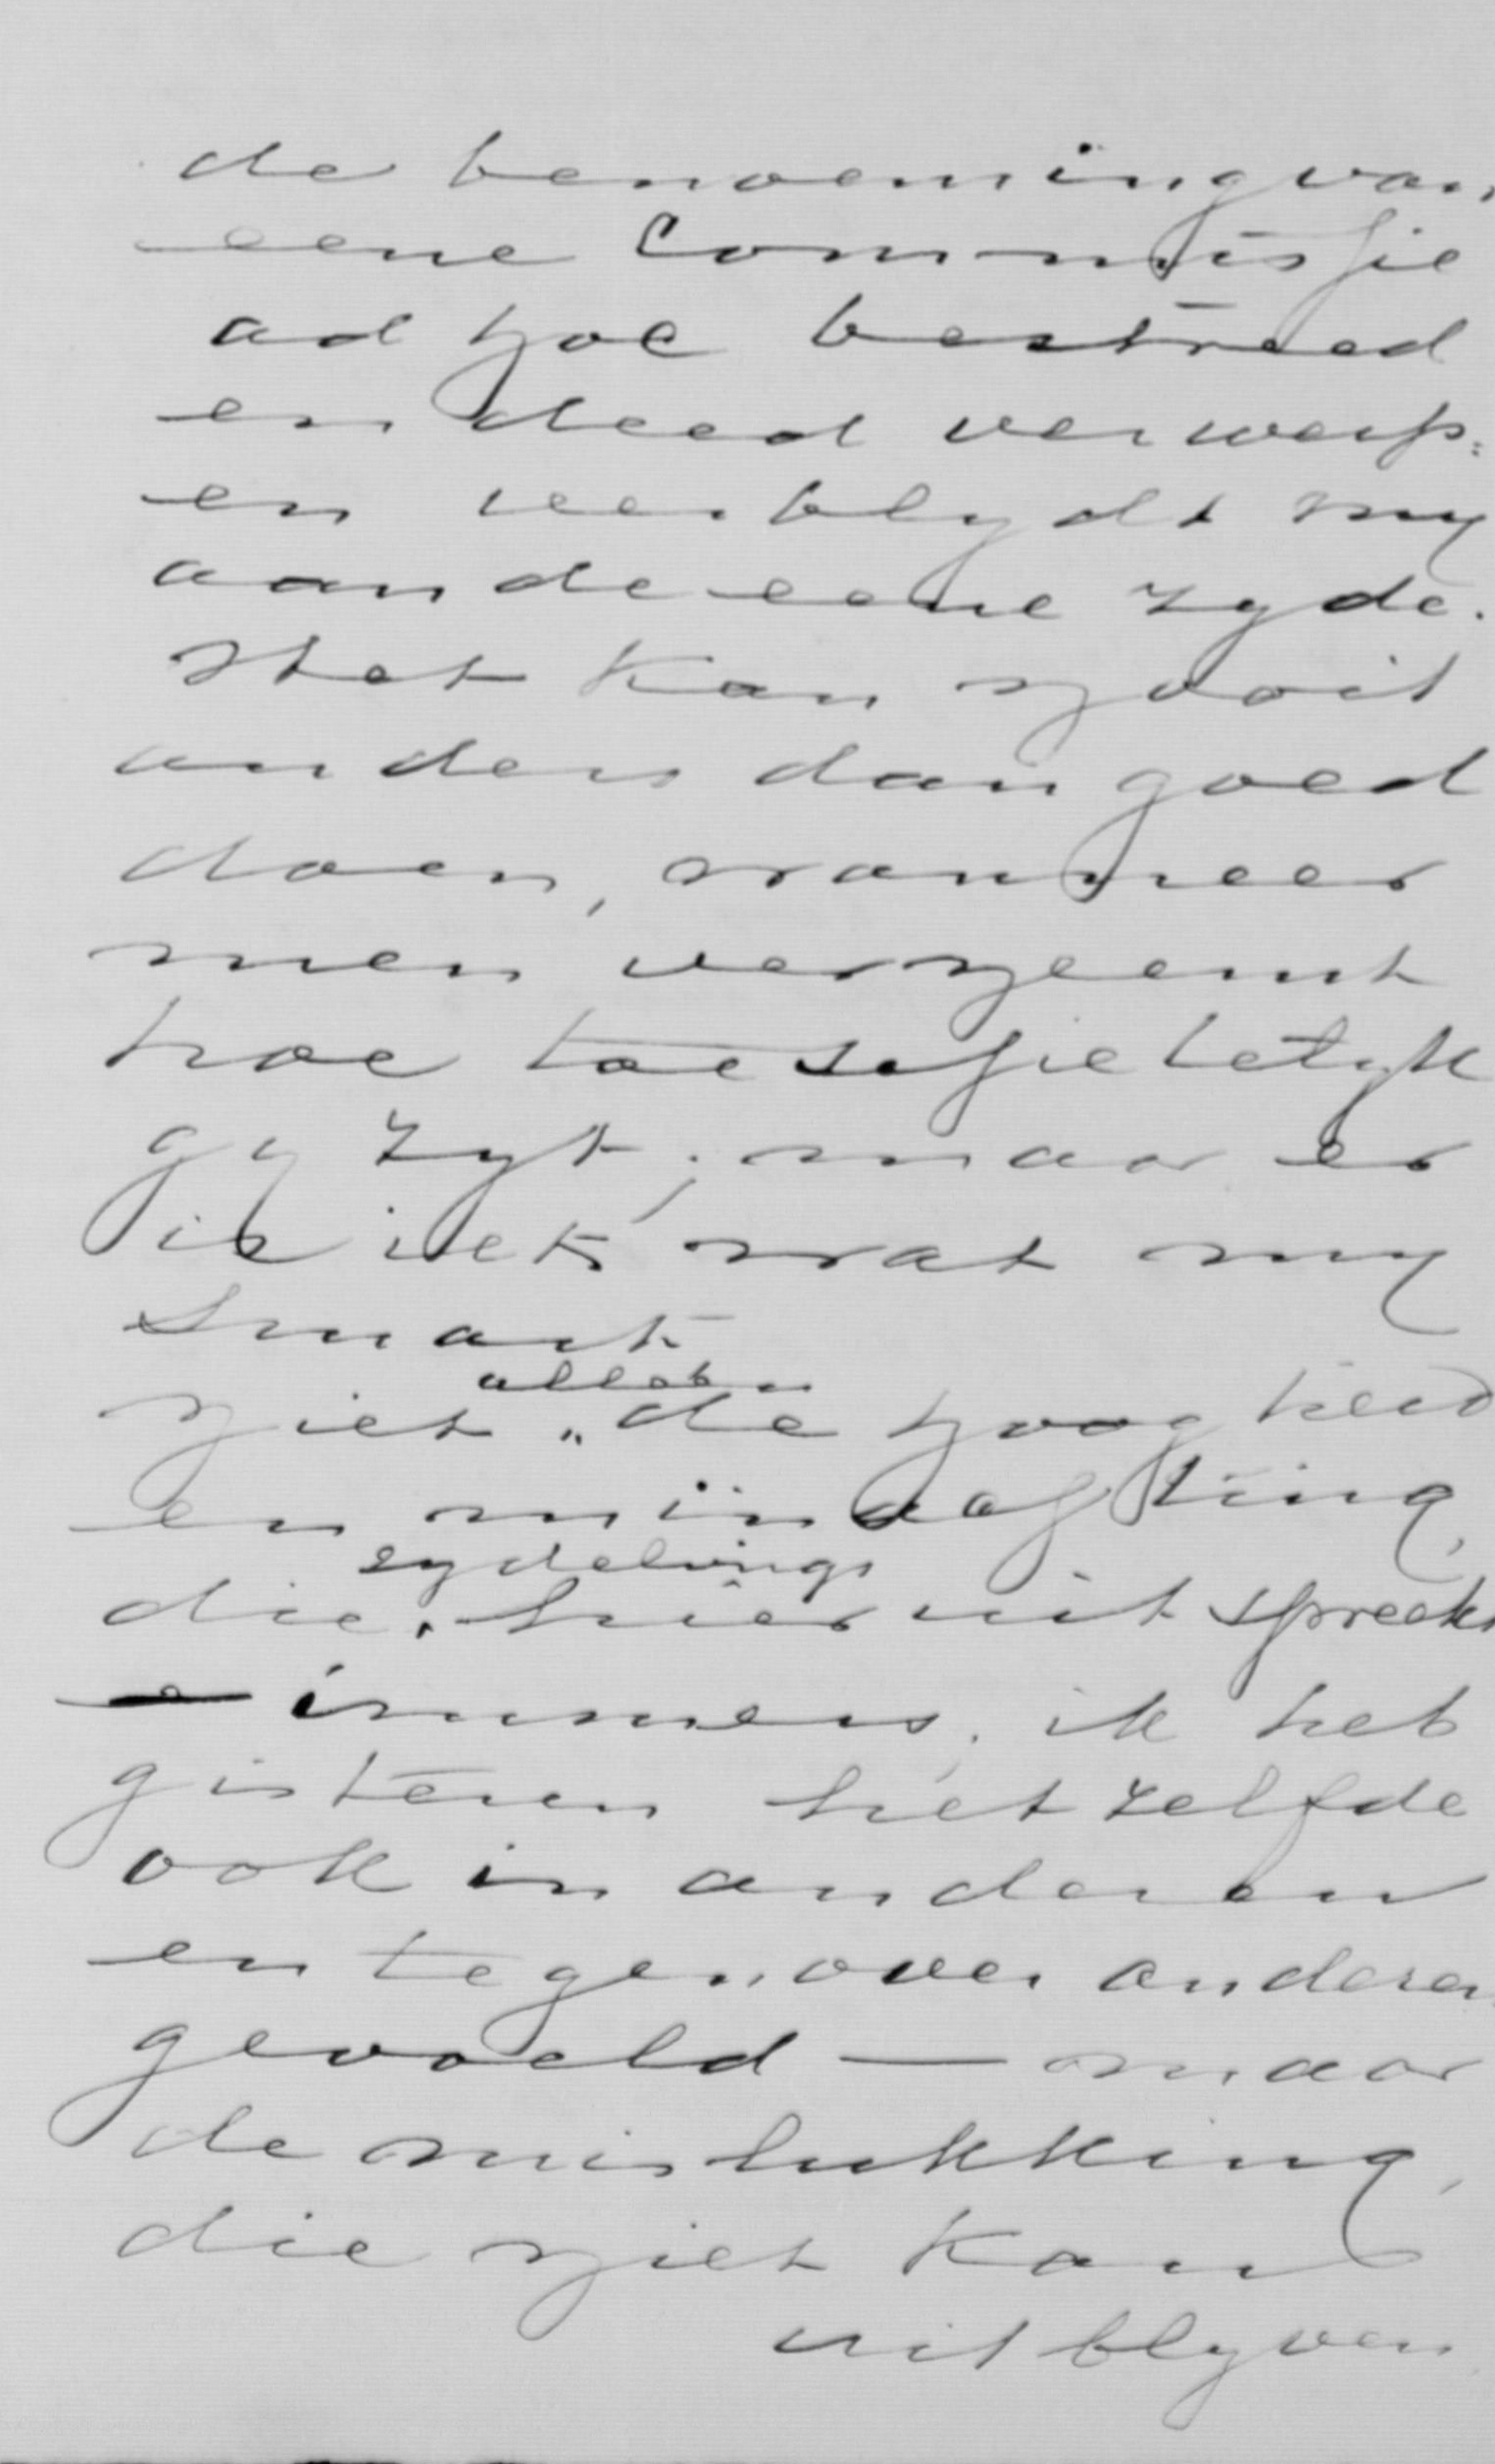 de benoeming van
eene Commissie
ad hoc bestreed
en deed verwerp=
en verblydt my
aan de eene zyde.
Het kan nooit
anders dan goed
doen, wanneer
men verneemt
hoe toeschietelyk
gy zyt; maar er
is iets wat my
smart
alleen
niet „ de hoogheid
en minachting,
zydelings
die, hier uit spreekt
immers, ik heb
gisteren hetzelfde
ook in anderen
en tegenover anderen
gevoeld — maar
de mislukking,
die niet kan
uitblyven